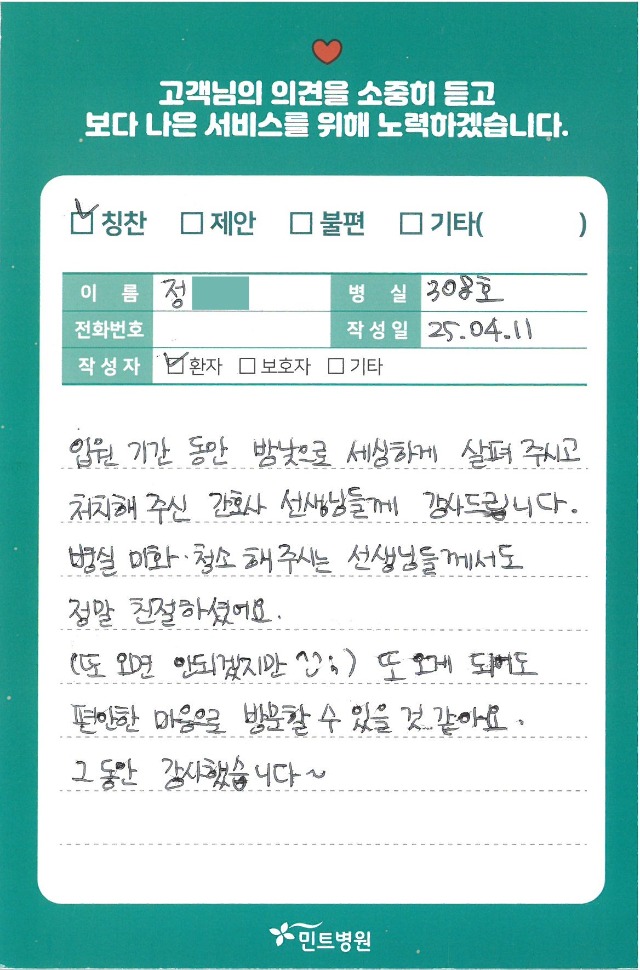 고객님의 의견을 소중히 듣고
보다 나은 서비스를 위해 노력하겠습니다.
칭찬 제안 불편 기타( )
이 름 정 병 실 308호
전화번호 작성일 25.04.11
작성자 환자 보호자 기타
입원 기간 동안 밤낮으로 세심하게 살펴 주시고
처치해 주신 간호사 선생님들께 감사드립니다.
병실 미화·청소 해 주시는 선생님들께서도
정말 친절하셨어요.
(또 오면 안되겠지만 ^^;) 또 오게 되어도
편안한 마음으로 방문할 수 있을 것 같아요.
그동안 감사했습니다~
민트병원